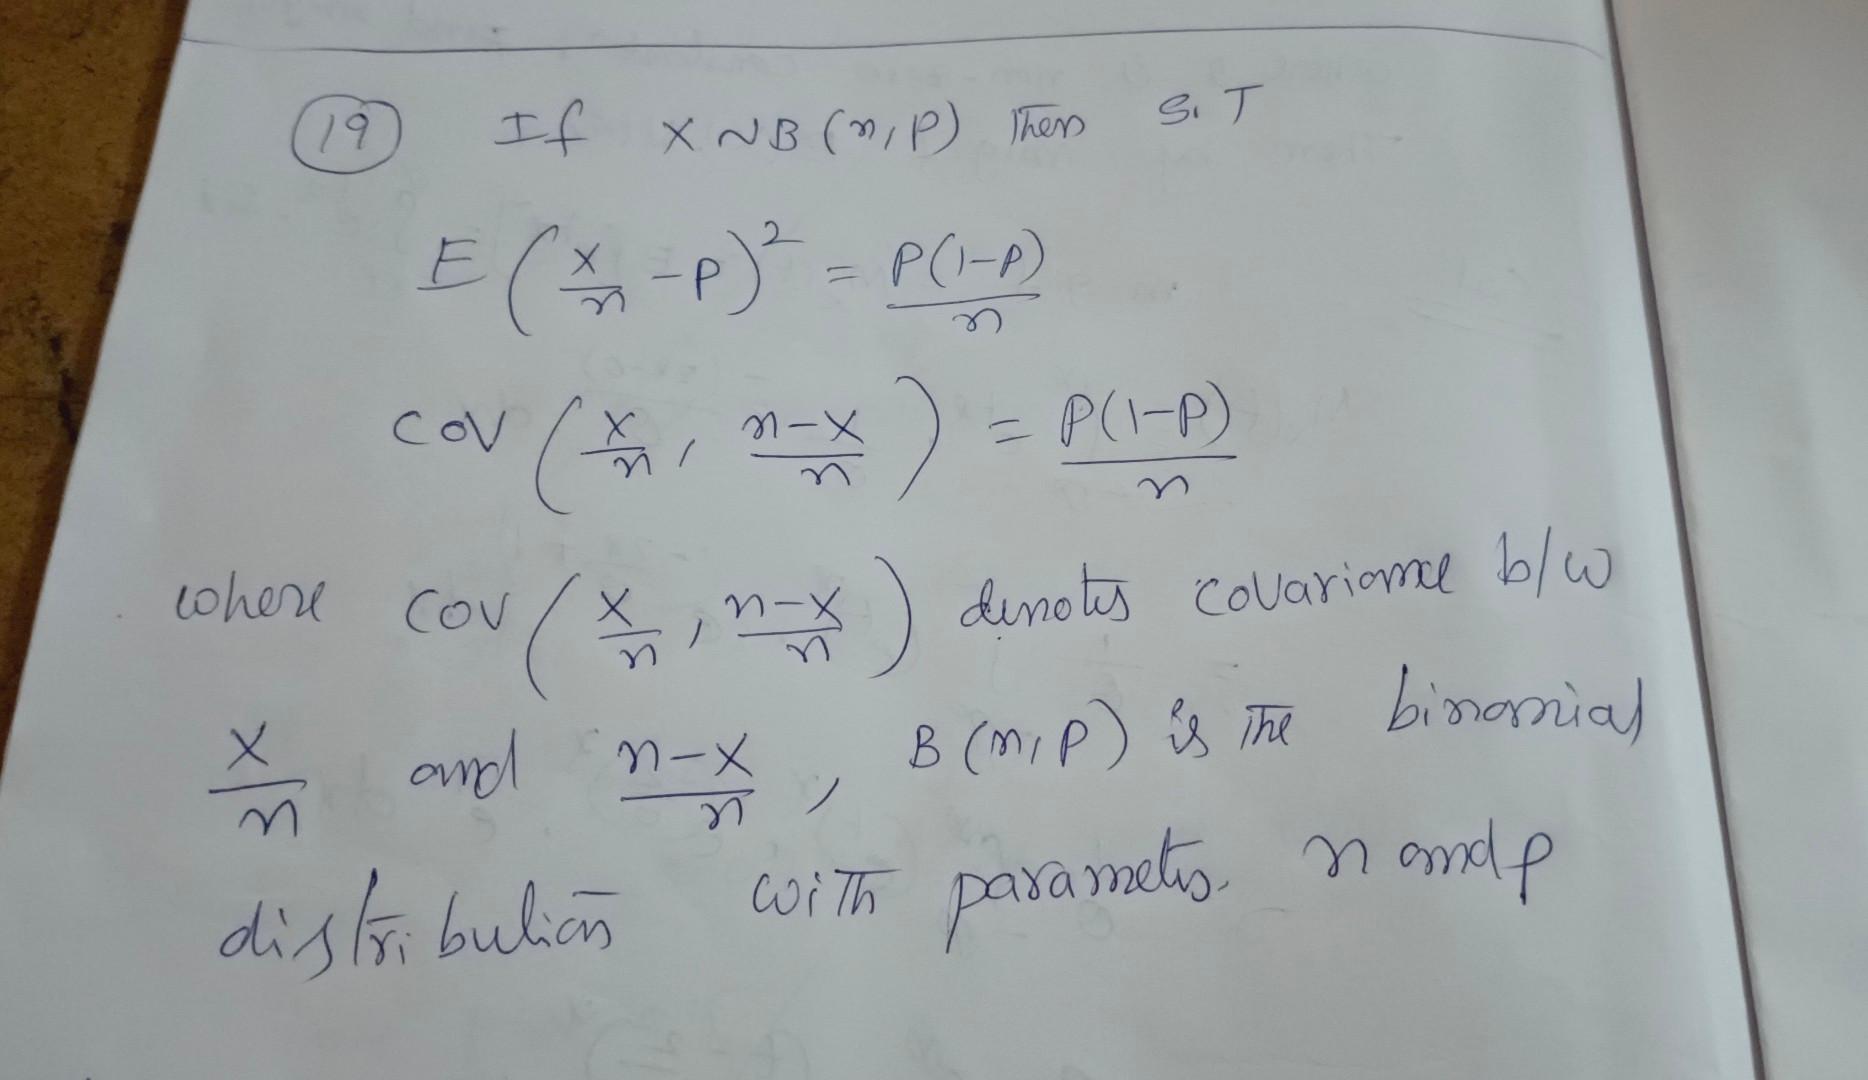 19 If X ~ B(n, p) Then S.T
E(X/n - p)² = p(1-p)/n
COV(X/n, n-X/n) = p(1-p)/n
where COV(X/n, n-X/n) denotes covariance b/w
X/n and n-X/n, B(n, p) is The binomial
distribution with parametrs. n and p